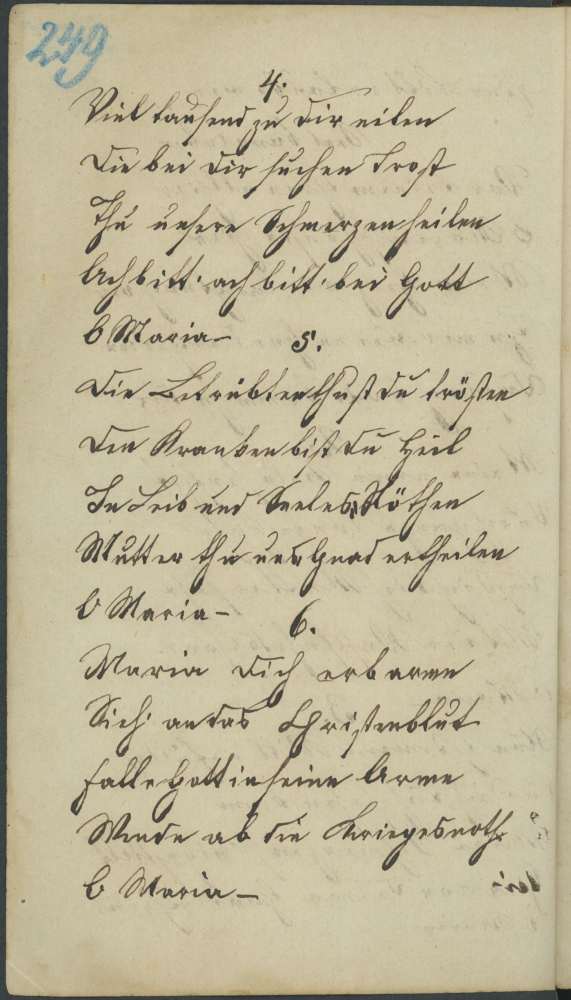 249
4.
Viel tausend zu dir eilen
Die bei dir suchen Trost
Thu unsere Schmerzen heilen
Ach bitt' ach bitt' bei Gott
O Maria –
5.
Die Betrübten thust du trösten
Den Kranken bist du Heil
In Leib und Seeles Nöthen
Mutter thu uns Gnad ertheilen
O Maria –
6.
Maria dich erbarme
Sieh' an das Christenblut
Falle Gott in seine Arme
Wende ab die Kriegesnoth
O Maria –